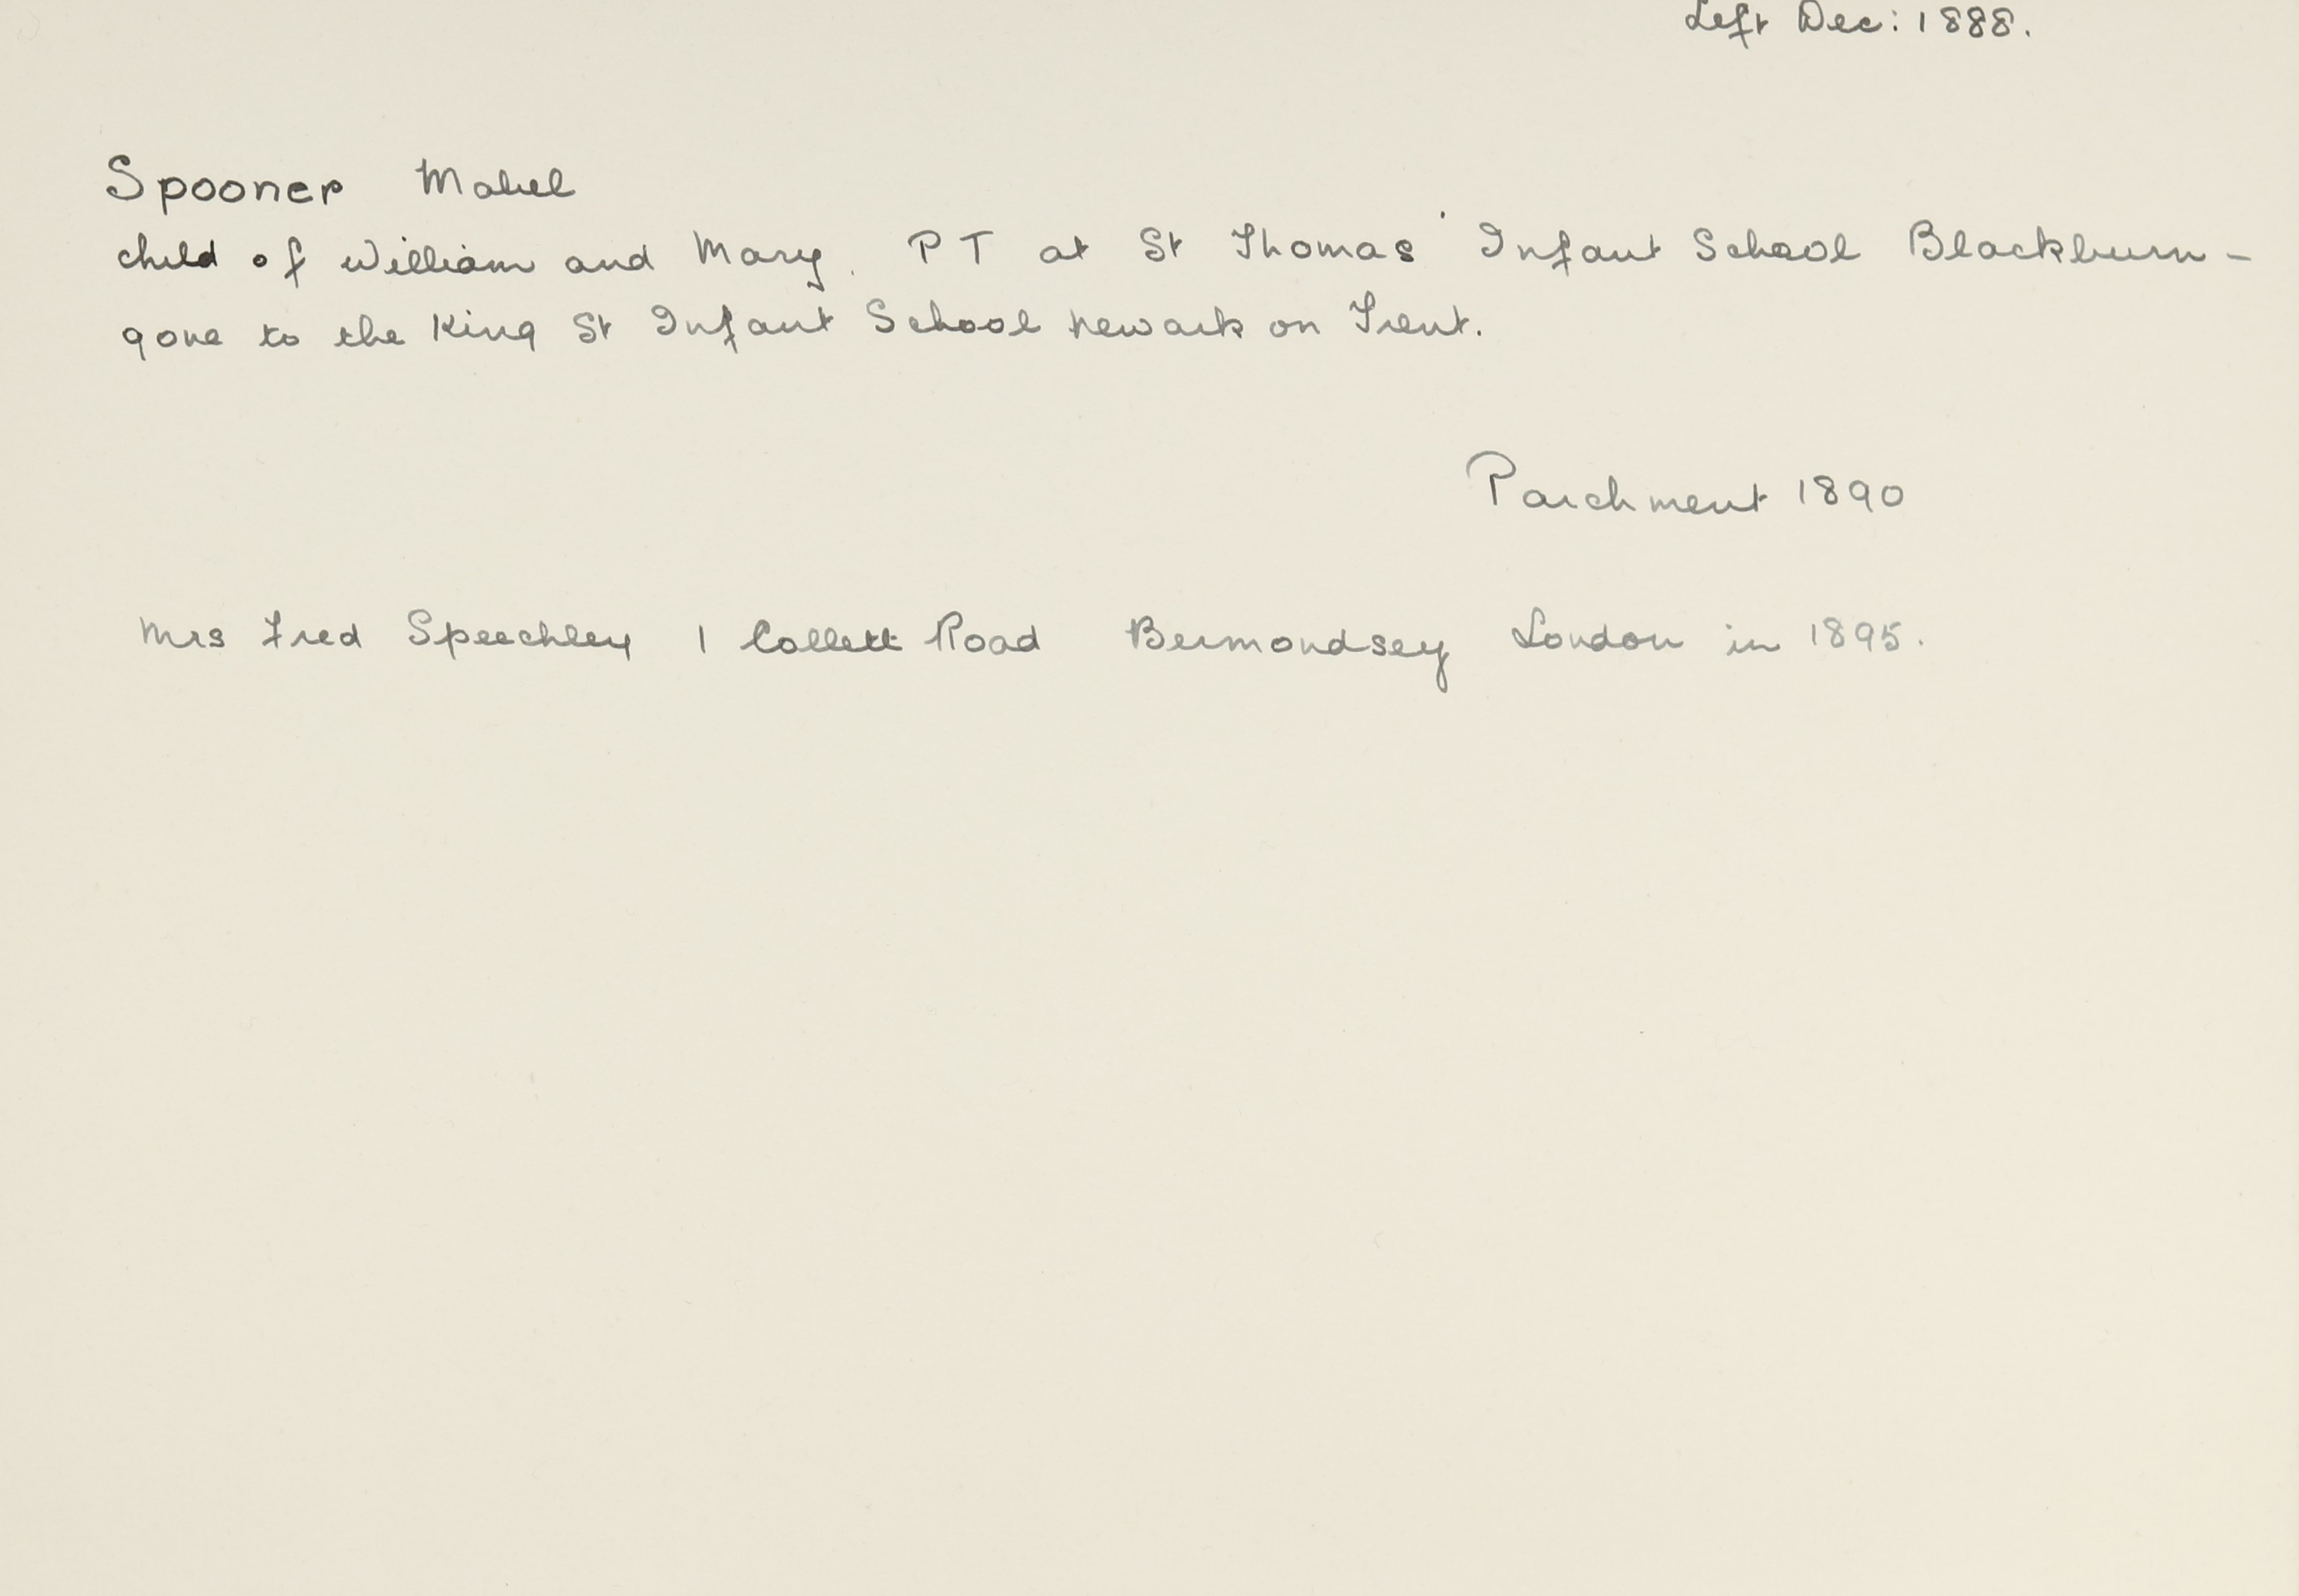 Left Dec: 1888.
Spooner Mabel
child of William and Mary. PT at St Thomas' Infant School Blackburn -
gone to the King St Infant School Newark on Trent.
Parchment 1890
Mrs Fred Speechley 1 Collett Road Bermondsey London in 1895.